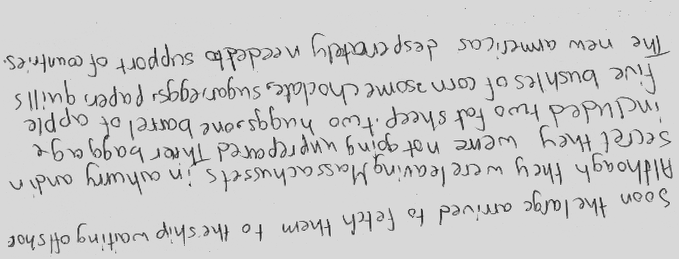 Soon the large arrived to fetch them to the ship waiting offshor
Although they were leaving Massachussets in ahurry and n
Secret they were not going unprepared Their baggage
included two fat sheep. two huggs, one barrel of apple
five bushles of corn some choclate, sugar, eggs, paper, quills
The new americas desperately needed to support of countries.